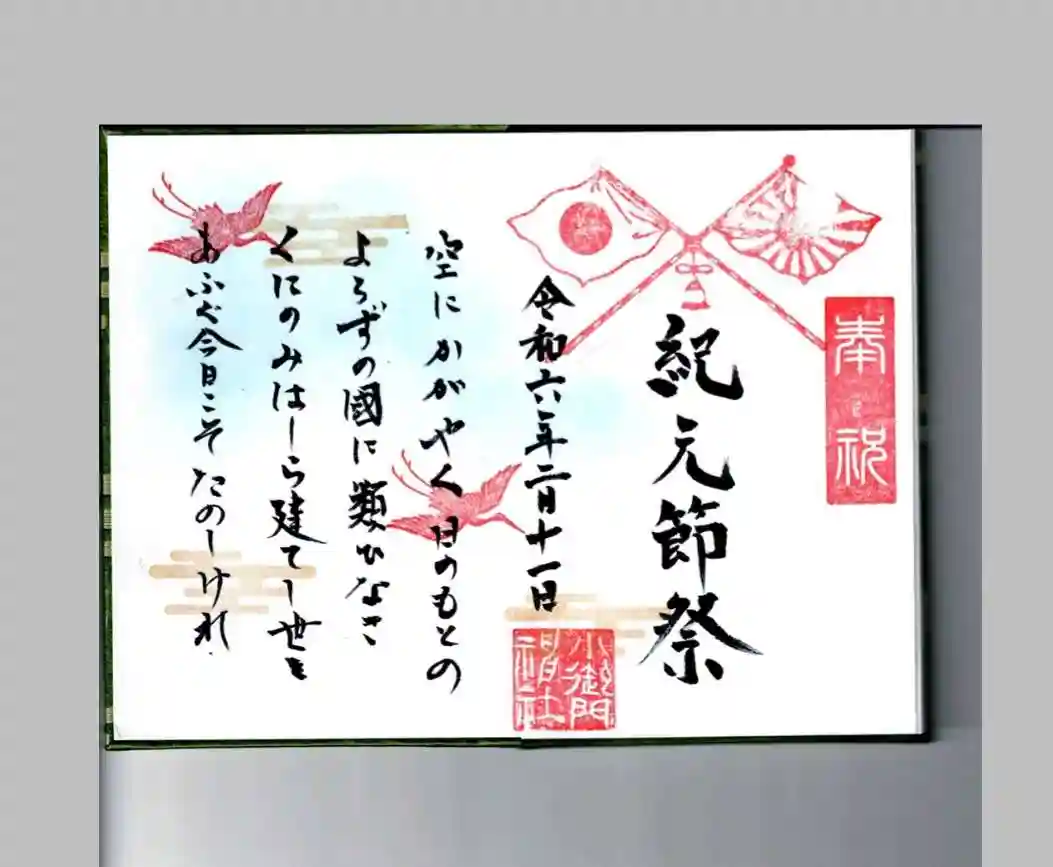 奉祝
紀元節祭
令和六年二月十一日
小御門神社
空にかがやく日のもとの
よろずの國に類ひなき
くにのみはしら建てし世を
あふぐ今日こそたのしけれ